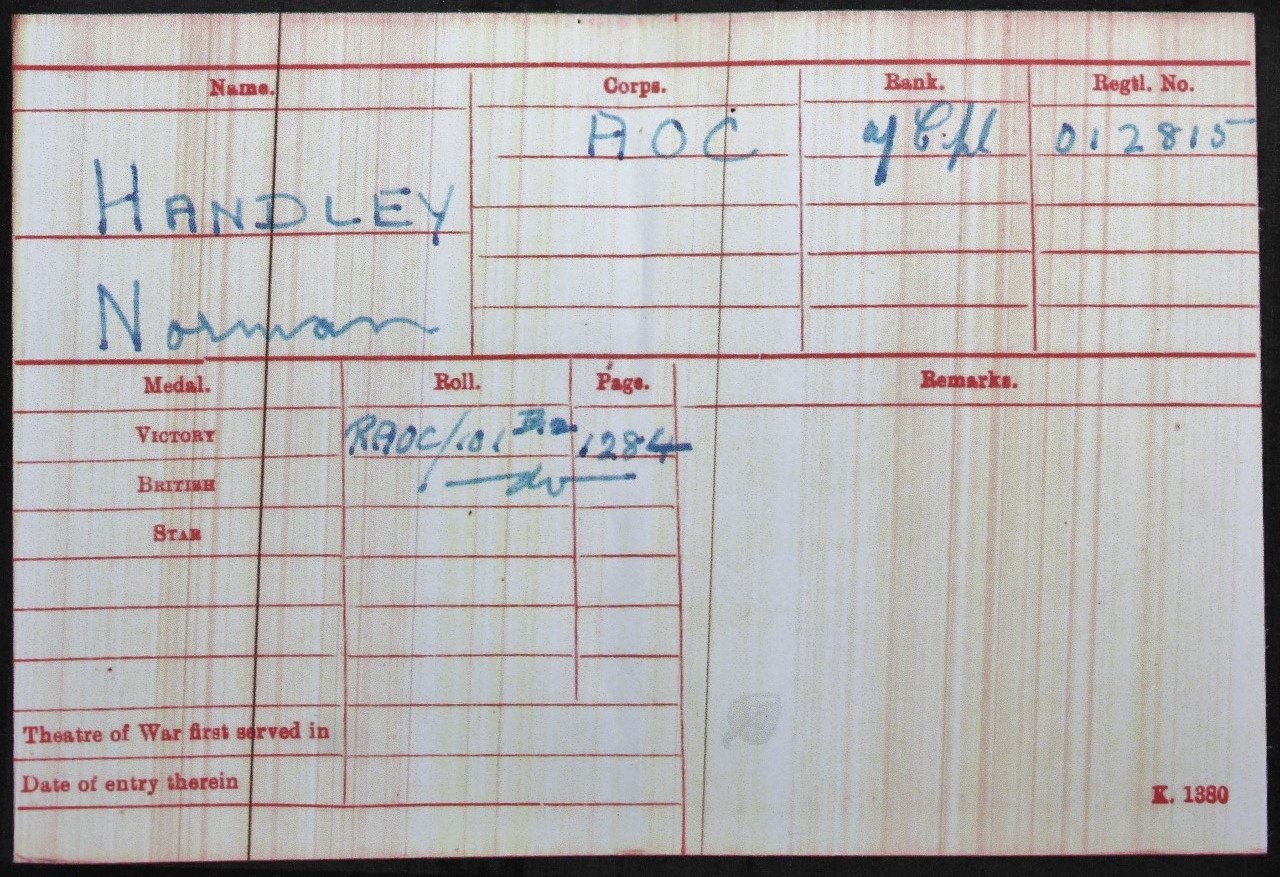 Name. Corps. Rank. Regtl. No.
AOC Cpl 012815
HANDLEY
Norman
Medal. Roll. Page. Remarks.
VICTORY RAOC/101 1284
BRITISH do
STAR
Theatre of War first served in
Date of entry therein
K. 1380